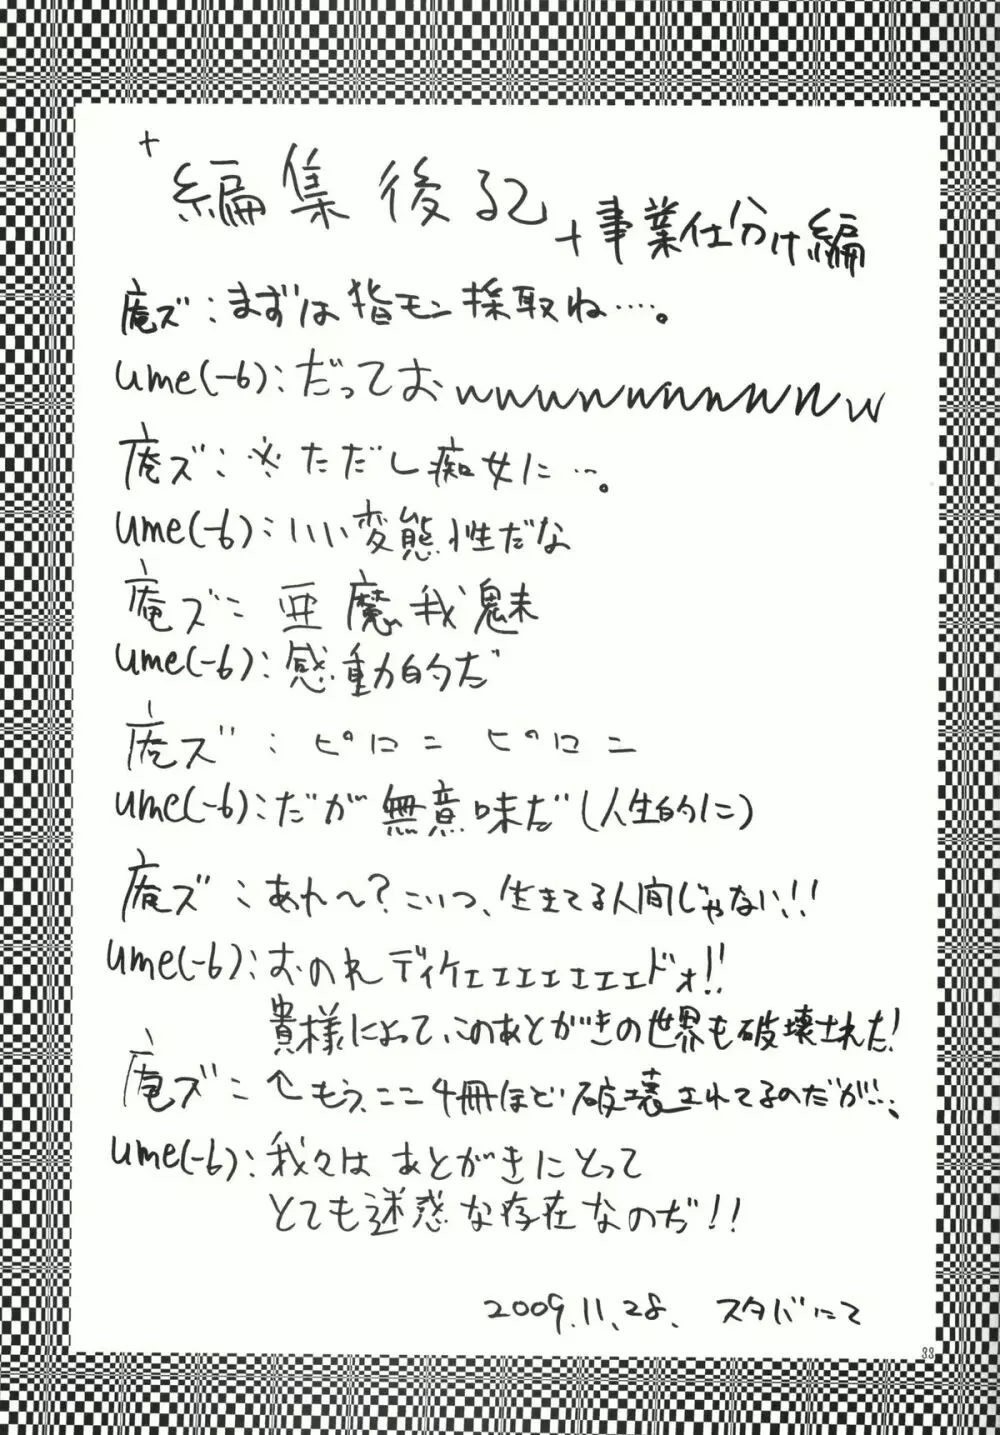 +編集後記+事業仕分け編
庵ズ:まずは指モン採取ね‥‥。
ume(-6):だっておwwwwwwwwwww
庵ズ:※ただし痴女に…。
ume(-6):いい変態性だな
庵ズ:亜魔我魅
ume(-6):感動的だ
庵ズ:ピロニ ピロニ
ume(-6):だが無意味だ(人生的に)
庵ズ:あれ〜?こいつ、生きてる人間じゃない!!
ume(-6):おのれディケェェェェェェドォ!!
貴様によって、このあとがきの世界も破壊された!
庵ズ:↑もう、ここ4冊ほど破壊されてるのだが…、
ume(-6):我々はあとがきにとって
とても迷惑な存在なのぢ!!
2009.11.28. スタバにて
33